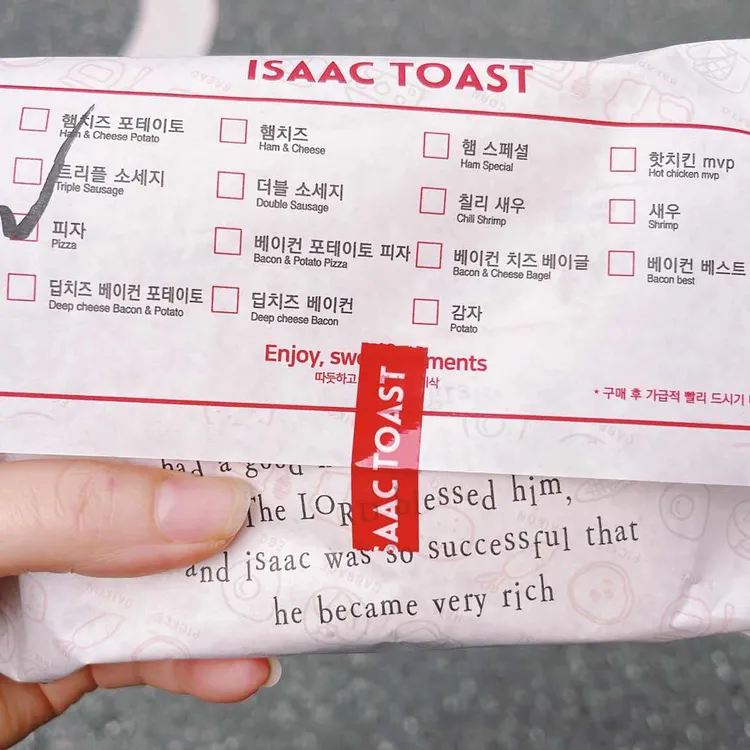 ISAAC TOAST
햄치즈 포테이토 햄치즈 햄 스페셜 핫치킨 mvp
Ham & Cheese Potato Ham & Cheese Ham Special Hot chicken mvp
트리플 소세지 더블 소세지 칠리 새우 새우
Triple Sausage Double Sausage Chili Shrimp Shrimp
피자 베이컨 포테이토 피자 베이컨 치즈 베이글 베이컨 베스트
Pizza Bacon & Potato Pizza Bacon & Cheese Bagel Bacon best
딥치즈 베이컨 포테이토 딥치즈 베이컨 감자
Deep cheese Bacon & Potato Deep cheese Bacon Potato
Enjoy,
따뜻하고
* 구매 후 가급적 빨리 드시기
AAC TOAST
had a good
The LORD blessed him,
and isaac was so successful that
he became very rich